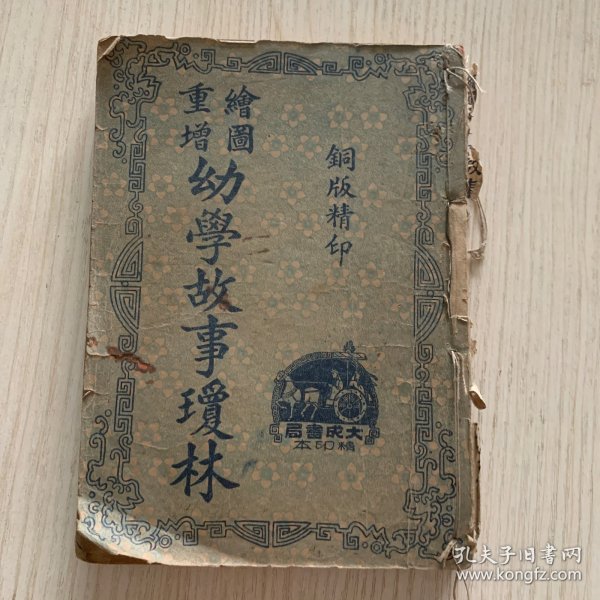 銅版精印
繪圖
重增
幼學故事瓊林
大成書局
精印本
孔夫子旧书网
www.kongfz.com